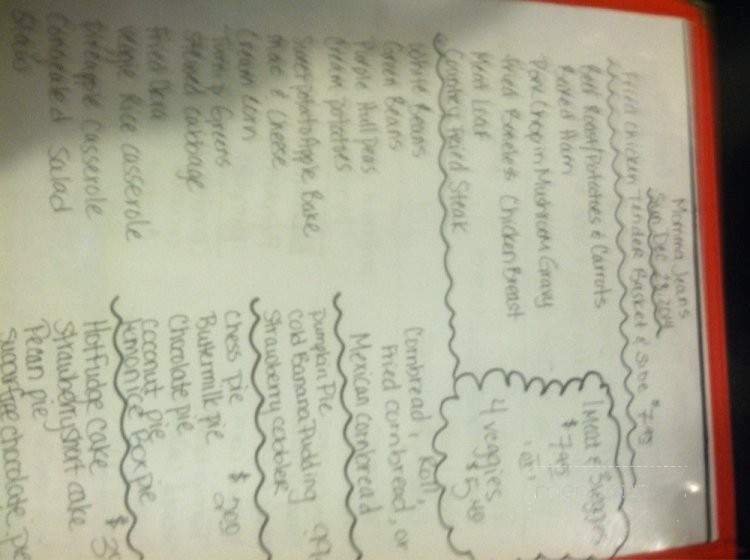 Momma Jeans
Sun Dec 28 2014
Fried Chicken Tender Basket & side $7.95
Beef Roast/Potatoes & Carrots
Baked Ham
Pork Chop in Mushroom Gravy
Fried Boneless Chicken Breast
Meat Loaf
Country Fried Steak
1 Meat & 3 veggies
$7.95
"or"
4 veggies
$5.
White Beans
Green Beans
Purple Hull Peas
Cream potatoes
Sweet potato Apple Bake
Mac & Cheese
Cream corn
Turnip Greens
cabbage
Fried Okra
Rice casserole
Pineapple Casserole
Congealed Salad
Slaw
Cornbread, Roll,
Fried cornbread, or
Mexican cornbread
Pumpkin Pie
Cold Banana Pudding
Strawberry cobbler
Chess pie
Buttermilk pie
Chocolate pie
Coconut pie
Lemon ice Box pie
Hot Fudge cake
Strawberry short cake
Pecan pie
sugar free chocolate pie